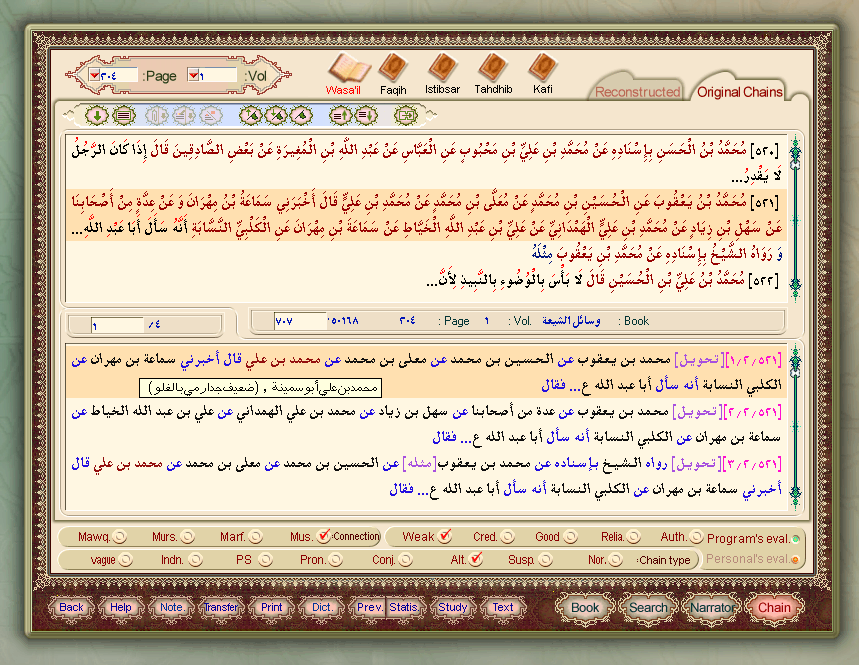 ۳۰۴ :Page ۱ :Vol
Wasa'il Faqih Istibsar Tahdhib Kafi
Reconstructed Original Chains
[۵۲۰] مُحَمَّدُ بْنُ الْحَسَنِ بِإِسْنَادِهِ عَنْ مُحَمَّدِ بْنِ عَلِيِّ بْنِ مَحْبُوبٍ عَنِ الْعَبَّاسِ عَنْ عَبْدِ اللَّهِ بْنِ الْمُغِيرَةِ عَنْ بَعْضِ الصَّادِقِينَ قَالَ إِذَا كَانَ الرَّجُلُ
لَا يَقْدِرُ...
[۵۲۱] مُحَمَّدُ بْنُ يَعْقُوبَ عَنِ الْحُسَيْنِ بْنِ مُحَمَّدٍ عَنْ مُعَلَّى بْنِ مُحَمَّدٍ عَنْ مُحَمَّدِ بْنِ عَلِيٍّ قَالَ أَخْبَرَنِي سَمَاعَةُ بْنُ مِهْرَانَ وَ عَنْ عِدَّةٍ مِنْ أَصْحَابِنَا
عَنْ سَهْلِ بْنِ زِيَادٍ عَنْ مُحَمَّدِ بْنِ عَلِيٍّ الْهَمْدَانِيِّ عَنْ عَلِيِّ بْنِ عَبْدِ اللَّهِ الْخَيَّاطِ عَنْ سَمَاعَةَ بْنِ مِهْرَانَ عَنِ الْكَلْبِيِّ النَّسَّابَةِ أَنَّهُ سَأَلَ أَبَا عَبْدِ اللَّهِ...
وَ رَوَاهُ الشَّيْخُ بِإِسْنَادِهِ عَنْ مُحَمَّدِ بْنِ يَعْقُوبَ مِثْلَهُ
[۵۲۲] مُحَمَّدُ بْنُ عَلِيِّ بْنِ الْحُسَيْنِ قَالَ لَا بَأْسَ بِالْوُضُوءِ بِالنَّبِيذِ لِأَنَّ...
۱ /۴
۷۰۷ ۱۵۰۱۶۸ ۳۰۴ :Page ۱ :Vol. وسائل الشيعة :Book
[۱/۲/۵۲۱][تحويل] محمد بن يعقوب عن الحسين بن محمد عن معلى بن محمد عن محمد بن علي قال أخبرني سماعة بن مهران عن
الكلبي النسابة أنه سأل أبا عبد الله ع... فقال
محمدبن‌علي‌أبوسمينة , (ضعيف‌جدارمي‌بالغلو)
[۲/۲/۵۲۱][تحويل] محمد بن يعقوب عن عدة من أصحابنا عن سهل بن زياد عن محمد بن علي الهمداني عن علي بن عبد الله الخياط عن
سماعة بن مهران عن الكلبي النسابة أنه سأل أبا عبد الله ع... فقال
[۳/۲/۵۲۱][تحويل] رواه الشيخ بإسناده عن محمد بن يعقوب[مثله] عن الحسين بن محمد عن معلى بن محمد عن محمد بن علي قال
أخبرني سماعة بن مهران عن الكلبي النسابة أنه سأل أبا عبد الله ع... فقال
Mawq. Murs. Marf. Mus. :Connection Weak Cred. Good Relia. Auth. Program's eval.
vague Indn. PS Pron. Conj. Alt. Susp. Nor. :Chain type Personal's eval.
Back Help Note. Transfer Print Dict. Prev. Statis. Study Text Book Search Narrator Chain